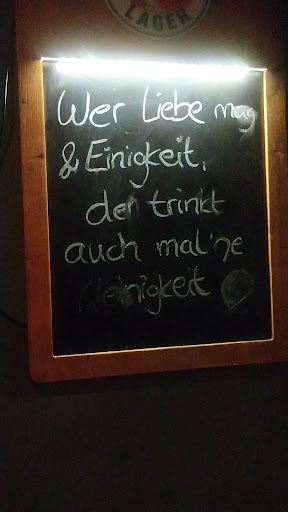 LAGER
Wer Liebe mag
& Einigkeit,
der trinkt
auch mal 'ne
Kleinigkeit